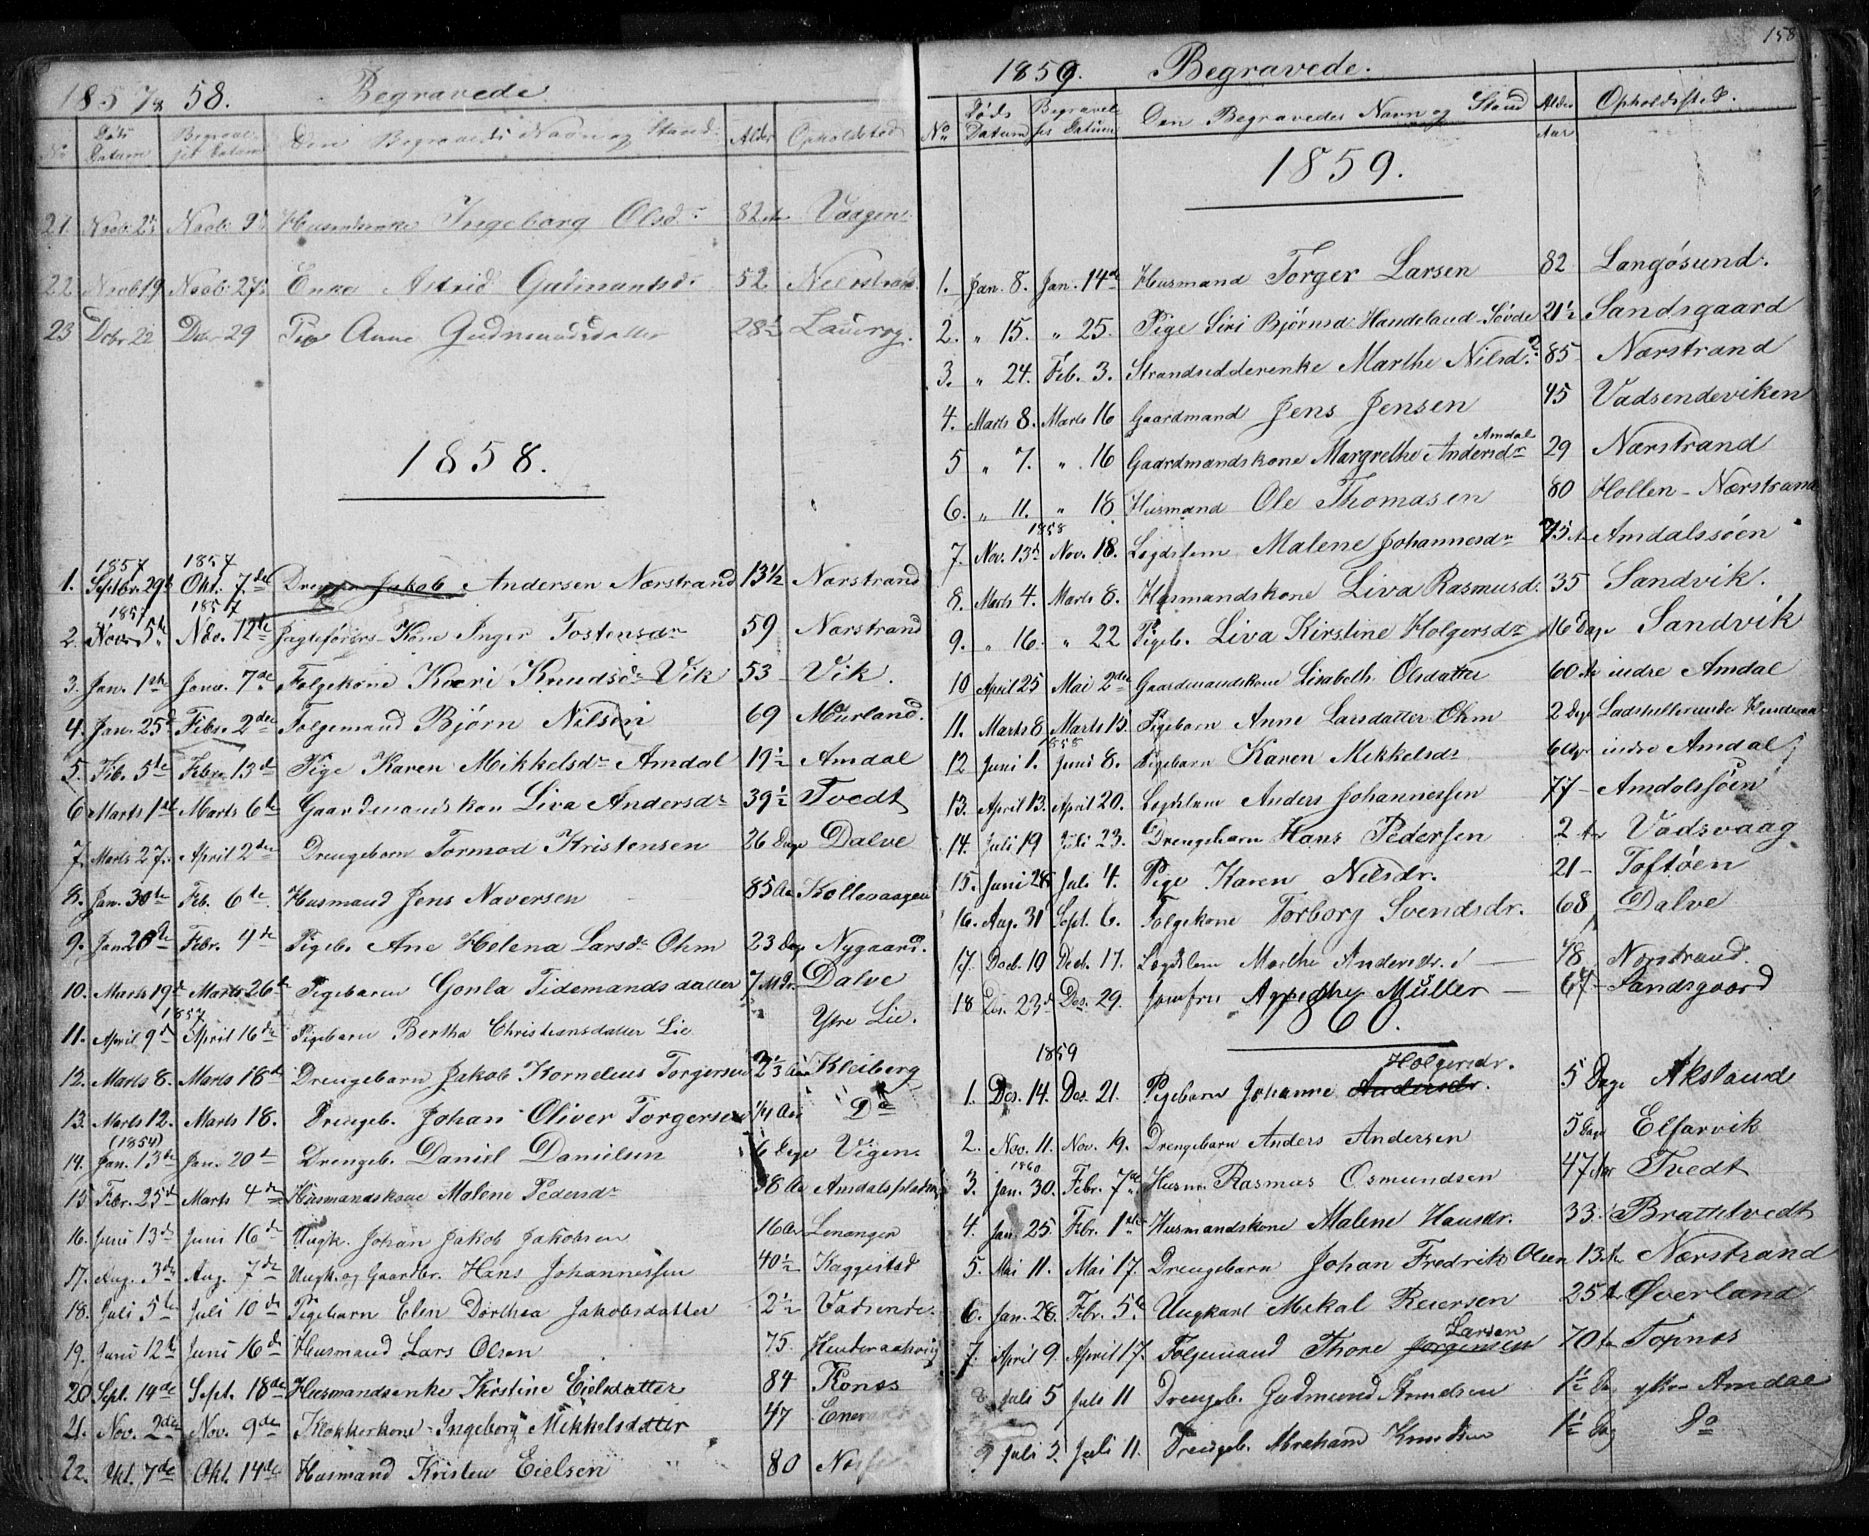 1857 & 58. Begravede.
No Døds Datum Begravelses Datum Den Begravedes Navn og Stand Alder Opholdssted
21. Novb. 2d Novb. 9d Husmdenke Ingeborg Olsdr 82 Aar Vaagen
22 Novb 19 Novb. 27d Enke Astrid Gudmundsdr 52 Neerstrand
23 Dcbr 22 Dcbr 29 Pige Anne Gudmundsdatter 28½
1858.
1. 1857 Septbr. 29d 1857 Okt. 7de Dreng Jakob Andersen Nærstrand 13½ Nærstrand
2. 1857 Novb. 5te 1857 Nov. 12te Kone Inger Tostensdr 59 Nærstrand
3. Jan. 1ste Janu. 7de Folgekone Kari Knudsdr Vik 53 Vik.
4. Jan. 25d Febr. 2den Folgemand Bjørn Nilsen 69 Murland.
5. Feb. 5te Febr. 13d Pige Karen Mikkelsdr Amdal 19½ Amdal
6 Marts 1ste Marts 6te Gaardmandskon Liva Andersdr 39½ Tvedt
7. Marts 27. April 2den Drengebarn Tormod Kristensen 26 Dage Dalve
8. Jan. 30te Feb. 6te Husmand Jens Naversen 85 Aar Kollevaagen
9. Jan 26te Febr. 4de Pigeb. Ane Helena Larsdr Ohm 23 Dag Nygaard.
10. Marts 19d Marts 26te Pigebarn Gonla Tidemandsdatter 7 Mdr. Dalve
11. April 9d 1857 April 16de Pigebarn Bertha Christiansdatter Lie " Ytre Lie.
12. Marts 8. Marts 18d Drengebarn Jakob Kornelius Torgersen Kleiberg
13. Marts 12. Marts 18. Drengeb. Johan Oliver Torgersen Do
14. (1854) Jan. 13de Jan. 20de Drengeb. Daniel Danielsen 6 Dage Vigen.
15 Febr. 25d Marts 4de Husmandskone Malene Pedersdr 38 Aar
16. Juni 13de Juni 16de Ungk. Johan Jakob Jakobsen 16 Aar
17. Aug. 3de Aug. 7de Ungk. og Gaardbr. Hans Johannessen 40½ Kaggestad
18. Juli 5te Juli 10de Pigebarn Elen Dorthea Jakobsdatter 2½ Vadsende.
19. Juni 12te Juni 16de Husmand Lars Olsen 75.
20. Sept. 14de Sept. 18de Husmandsenke Kirstine Eielsdatter 84
21. Nov. 2de Nov. 9de Klokkerkone Ingeborg Mikkelsdatter 47
22. Okt. 7de Okt. 14de Husmand Kristen Eielsen 80
158
1859. Begravede.
No Døds Datum Begravelses Datum Den Begravedes Navn og Stand Alder Aar Opholdssted.
1859.
1. Jan. 8. Jan. 14de Husmand Torger Larsen 82 Langøsund.
2. " 15. " 25. Pige Siri Bjørnsd. Handeland-Søvde 21½ Sandsgaard
3. " 24. Feb. 3. Strandsidderenke Marthe Nilsdr. 85 Nærstrand
4. Marts 8. Marts 16 Gaardmand Jens Jensen 45 Vadsendeviken
5 " 7. " 16 Gaardmandskone Margrethe Andersdr Amdal 29 Nærstrand
6. " 11. " 18 Husmand Ole Thomasen 80 Hollen - Nærstrand
7. Nov. 13d 1858 Nov. 18. Legdslem Malene Johannesdr 75 Aar Amdalssøen
8. Marts 4. Marts 8. Husmandskone Liva Rasmusd. 35 Sandvik.
9. " 16. " 22 Pigeb. Liva Kirstine Holgersdr 16 Dage Sandvik
10 April 25 Mai 2den Gaardmandskone Lisabeth Olsdatter 60 Aar indre Amdal
11. Marts 8 Marts 15 Pigebarn Anne Larsdatter Ohm 2 Dage
12 Juni 1. 1858 Juni 8. Pigebarn Karen Mikkelsdr 6 Uger indre Amdal
13. April 13. April 20. Legdslem Anders Johannessen 77 Amdalssøen
14. Juli 19 Juli 23. Drengebarn Hans Pedersen 2 Aar Vadsvaag
15. Juni 28 Juli 4. Pige Karen Nilsdr. 21 Toftøen
16. Aug. 31 Sept. 6. Folgekone Torborg Svendsdr. 68 Dalve
17. Decb. 10 Decb. 17. Legdslem Marthe Andersdr. 48 Nærstrand.
18 Des. 23d Des. 29. Jomfru Müller 67 Sandsgaard
1860.
1. Des. 14. 1859 Des. 21. Pigebarn Johanne Andersdr. Holgersdr. 5 Dage Aksland
2. Nov. 11. Nov. 19. Drengebarn Anders Andersen 5 Dage Elfarvik
3. 1860 Jan. 30. Febr. 7de Husm. Rasmus Osmundsen 47 Aar Tvedt
4. Jan. 25. Febr. 1ste Husmandskone Malene Hansdr. 33 Brattetvedt
5. Mai 11. Mai 17. Drengebarn Johan Fredrik Olsen 13 Aar Nærstrand
6. Jan. 28. Febr. 5te Ungkarl Mikal Reiersen 25 Aar Øverland
7. April 9. April 17. Folgemand Thore Jørgensen Larsen 70 Aar Topnes
8 Juli 5 Juli 11 Drengeb. Gudmund Knudsen 1½ Dag ytre Amdal
9 Juli 5. Juli 11. Drengeb. Abraham Knudsen 1½ Dag Do